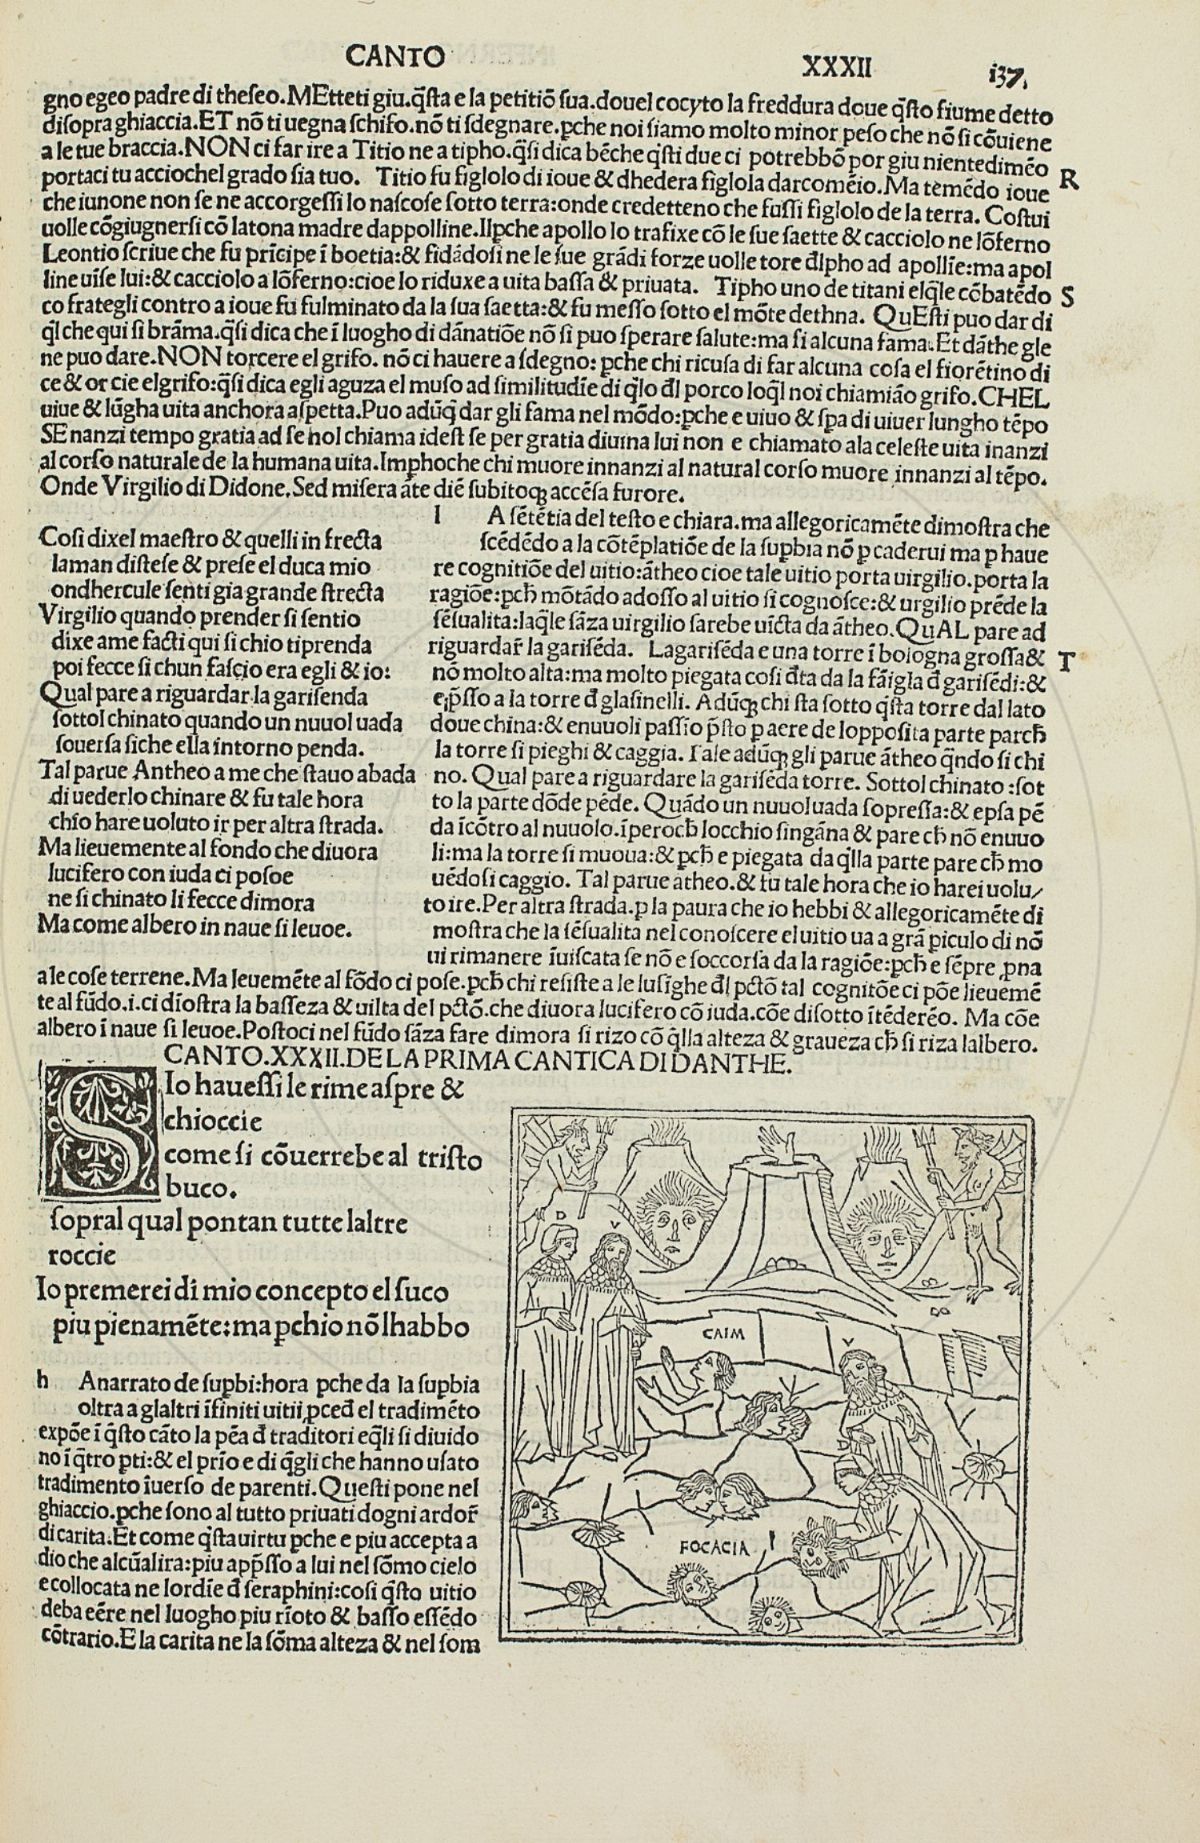 CANTO XXXII i37.
gno egeo padre di theseo. MEtteti giu. q̄sta e la petitiō sua. douel cocyto la freddura doue q̄sto fiume detto
disopra ghiaccia. ET nō ti uegna schifo. nō ti sdegnare. pche noi siamo molto minor peso che nō si cōuiene
a le tue braccia. NON ci far ire a Titio ne a tipho. q̄si dica bēche q̄sti due ci potrebbō por giu nientedimēo
portaci tu acciochel grado sia tuo. Titio fu figlolo di ioue & dhedera figlola darcomēio. Ma temēdo ioue R
che iunone non se ne accorgessi lo nascose sotto terra: onde credetteno che fussi figlolo de la terra. Costui
uolle cōgiugnersi cō latona madre dappolline. Ilpche apollo lo trafixe cō le sue saette & cacciolo ne lōferno
Leontio scriue che fu prīcipe ī boetia: & fidādosi ne le sue grādi forze uolle tore đlpho ad apollīe: ma apol
line uīse lui: & cacciolo a lōferno: cioe lo riduxe a uita bassa & priuata. Tipho uno de titani elq̄le cōbatēdo S
co frategli contro a ioue fu fulminato da la sua saetta: & fu messo sotto el mōte dethna. QuEsti puo dar di
q̄l che qui si brāma. q̄si dica che ī luogho di dānatiōe nō si puo sperare salute: ma si alcuna fama. Et dāthe gle
ne puo dare. NON torcere el grifo. nō ci hauere a sdegno: pche chi ricusa di far alcuna cosa el fiorētino di
ce & or cie elgrifo: q̄si dica egli aguza el muso ad similitudīe di q̄lo đl porco loq̄l noi chiamiāo grifo. CHEL
uiue & lūgha uita anchora aspetta. Puo adūq̄ dar gli fama nel mōdo: pche e uiuo & spa di uiuer lungho tēpo
SE nanzi tempo gratia ad se nol chiama idest se per gratia diuina lui non e chiamato ala celeste uita inanzi
al corso naturale de la humana uita. Imphoche chi muore innanzi al natural corso muore innanzi al tēpo.
Onde Virgilio di Didone. Sed misera āte diē subitoq; accēsa furore.
Cosi dixel maestro & quelli in frecta
laman distese & prese el duca mio
ondhercule senti gia grande strecta
Virgilio quando prender si sentio
dixe ame facti qui si chio tiprenda
poi fecce si chun fascio era egli & io:
Qual pare a riguardar la garisenda
sottol chinato quando un nuuol uada
souersa siche ella intorno penda.
Tal parue Antheo a me che stauo abada
di uederlo chinare & fu tale hora
chio hare uoluto ir per altra strada.
Ma lieuemente al fondo che diuora
lucifero con iuda ci posoe
ne si chinato li fecce dimora
Ma come albero in naue si leuoe.
l A sētētia del testo e chiara. ma allegoricamēte dimostra che
scēdēdo a la cōtēplatiōe de la supbia nō p caderui ma p haue
re cognitiōe del uitio: ātheo cioe tale uitio porta uirgilio. porta la
ragiōe: pch̄ mōtādo adosso al uitio si cognosce: & urgilio prēde la
sēsualita: laq̄le sāza uirgilio sarebe uīcta da ātheo. QuAL pare ad
riguardar̄ la garisēda. Lagarisēda e una torre ī bologna grossa & T
nō molto alta: ma molto piegata cosi đta da la fāigla đ garisēdi: &
e p̄sso a la torre đ glasinelli. Adūq; chi sta sotto q̄sta torre dal lato
doue china: & enuuoli passio p̄sto p aere de lopposita parte parch̄
la torre si pieghi & caggia. Tale adūq; gli parue ātheo q̄ndo si chi
no. Qual pare a riguardare la garisēda torre. Sottol chinato: sot
to la parte dōde pēde. Quādo un nuuol uada sopressa: & epsa pē
da īcōtro al nuuolo. īperoch̄ locchio singāna & pare ch̄ nō enuuo
li: ma la torre si muoua: & pch̄ e piegata da q̄lla parte pare ch̄ mo
uēdosi caggio. Tal parue ātheo. & fu tale hora che io harei uolu/
to ire. Per altra strada. p la paura che io hebbi & allegoricamēte di
mostra che la sēsualita nel conoscere el uitio ua a grā piculo di nō
ui rimanere īuiscata se nō e soccorsa da la ragiōe: pch̄ e sēpre pna
a le cose terrene. Ma leuemēte al fōdo ci pose. pch̄ chi resiste a le lusīghe đl pctō tal cognitōe ci pōe lieuemē
te al fūdo. i. ci dīostra la basseza & uilta del pctō. che diuora lucifero cō iuda. cōe disotto ītēderēo. Ma cōe
albero ī naue si leuoe. Postoci nel fūdo sāza fare dimora si rizo cō q̄lla alteza & graueza ch̄ si riza lalbero.
CANTO. XXXII. DE LA PRIMA CANTICA DI DANTHE.
SIo hauessi le rime aspre &
chioccie
come si cōuerrebe al tristo
buco.
sopral qual pontan tutte laltre
roccie
Io premerei di mio concepto el suco
piu pienamēte: ma pchio nō lhabbo
h Anarrato de supbi: hora pche da la supbia
oltra a glaltri īfiniti uitii, pceđ el tradimēto
expōe ī q̄sto cāto la pēa đ traditori eq̄li si diuido
no ī q̄tro pti: & el prīo e di q̄gli che hanno usato
tradimento īuerso de parenti. Questi pone nel
ghiaccio. pche sono al tutto priuati dogni ardor̄
di carita. Et come q̄sta uirtu pche e piu accepta a
dio che alcūalira: piu app̄sso a lui nel sōmo cielo
e collocata ne lordīe đ seraphini: cosi q̄sto uitio
deba eēre nel luogho piu rīoto & basso essēdo
cōtrario. E la carita ne la sōma alteza & nel som
D V
CAIM
V
D
FOCACIA